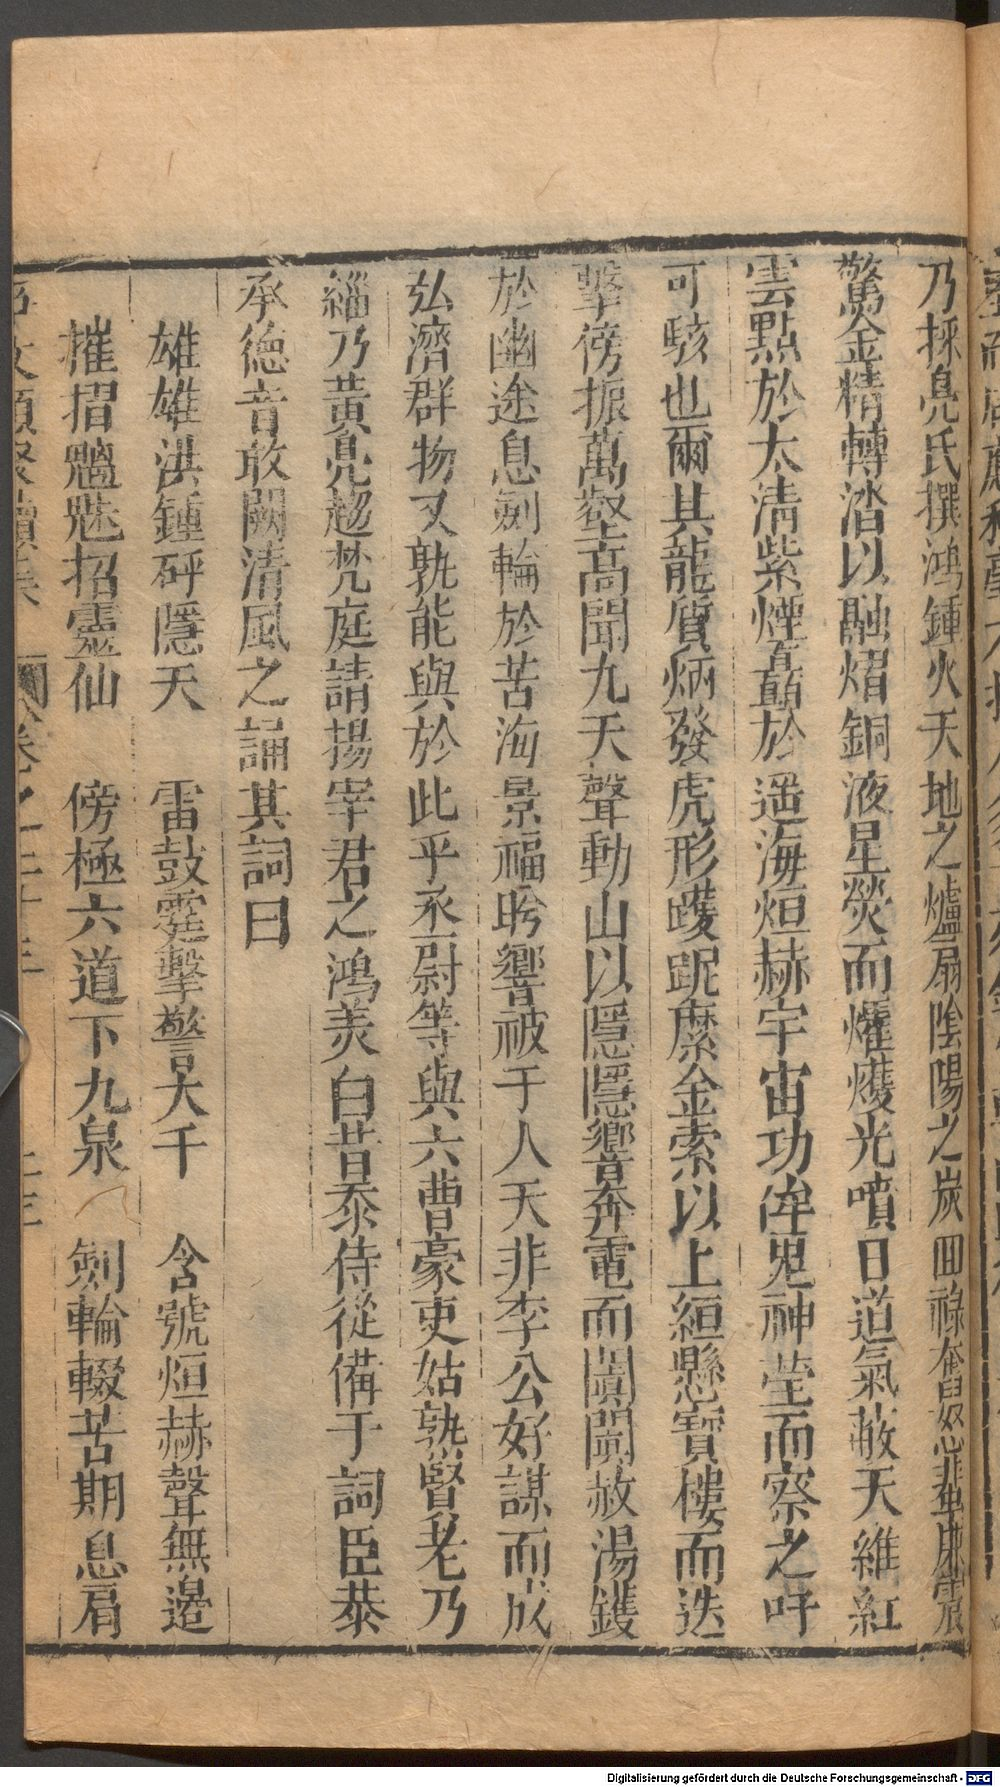 乃採鳧氏撰鴻鍾火天地之爐扇陰陽之炭回祿奮怒蜚廉震
驚金精轉潝以融熠銅液星熒而燿熳光噴日道氣蔽天維紅
雲點於太清紫煙矗於遥海烜赫宇宙功侔鬼神瑩而察之吁
可駭也爾其龍質炳發虎形躨跜縻金索以上絙懸寶樓而迭
擊傍振萬壑高聞九天聲動山以隱隱響奔電而闐闐赦湯鑊
於幽途息劍輪於苦海景福肸響被于人天非李公好謀而成
弘濟群物又孰能與於此乎丞尉等與六曹豪吏姑孰賢老乃
緇乃黃鳧趍梵庭請揚宰君之鴻美白昔忝侍從備于詞臣恭
承德音敢闕清風之誦其詞曰
雄雄洪鍾砰隱天 雷鼓霆擊警大千 含號烜赫聲無邊
摧摺魑魅招靈仙 傍極六道下九泉 劍輪輟苦期息肩
Digitalisierung gefördert durch die Deutsche Forschungsgemeinschaft - DFG